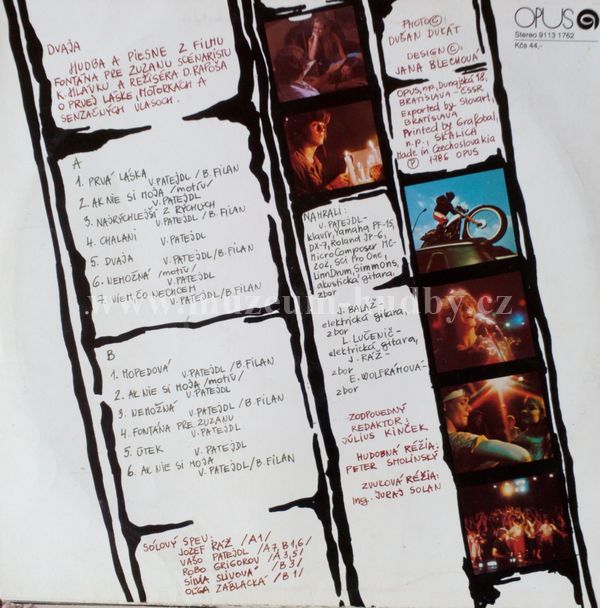 DVAJA
HUDBA A PIESNE Z FILMU
FONTÁNA PRE ZUZANU SCENÁRISTU
K. HLAVKU A REŽISÉRA D. RAPOŠA
O PRVEJ LÁSKE, MOTORKÁCH A
SENZAČNÝCH VLASOCH.
A
1. PRVÁ LÁSKA V. PATEJDL / B. FILAN
2. AK NIE SI MOJA /motív/
V. PATEJDL
3. NAJRÝCHLEJŠÍ Z RÝCHLYCH
V. PATEJDL / B. FILAN
4. CHALANI V. PATEJDL
5. DVAJA V. PATEJDL / B. FILAN
6. NEMOŽNÁ /motív/
V. PATEJDL
7. VIEM, ČO NECHCEM
V. PATEJDL / B. FILAN
B
1. MOPEDOVÁ V. PATEJDL / B. FILAN
2. AK NIE SI MOJA /motív/
V. PATEJDL
3. NEMOŽNÁ V. PATEJDL / B. FILAN
4. FONTÁNA PRE ZUZANU
V. PATEJDL
5. ÚTEK V. PATEJDL
6. AK NIE SI MOJA
V. PATEJDL / B. FILAN
SÓLOVÝ SPEV:
JOZEF RÁŽ /A1/
VAŠO PATEJDL /A7, B1,6/
ROBO GRIGOROV /A3,5/
SILVIA SLIVOVÁ /B3/
OĽGA ZÁBLACKÁ /B1/
NAHRALI:
V. PATEJDL-
klavír, Yamaha PF-15,
DX-7, Roland JP-6,
MicroComposer MC-
202, SCI Pro One,
LinnDrum, Simmons,
akustická gitara,
zbor
J. BALÁŽ-
elektrická gitara,
zbor
L. LUČENIČ-
elektrická gitara,
J. RÁŽ-
zbor
E. WOLFRAMOVÁ-
zbor
ZODPOVEDNÝ
REDAKTOR:
JÚLIUS KINČEK
HUDOBNÁ RÉŽIA:
PETER SMOLINSKÝ
ZVUKOVÁ RÉŽIA:
Ing. JURAJ SOLAN
PHOTO ©:
DUŠAN DUKÁT
DESIGN ©:
JANA BLECHOVÁ
OPUS, n.p., Dunajská 18,
BRATISLAVA - ČSSR
Exported by Slovart,
BRATISLAVA
Printed by Grafobal,
n.p., SKALICA
Made in Czechoslovakia
Ⓟ 1986 OPUS
OPUS
Stereo 9113 1762
Kčs 44,-
www.muzeum-hudby.cz